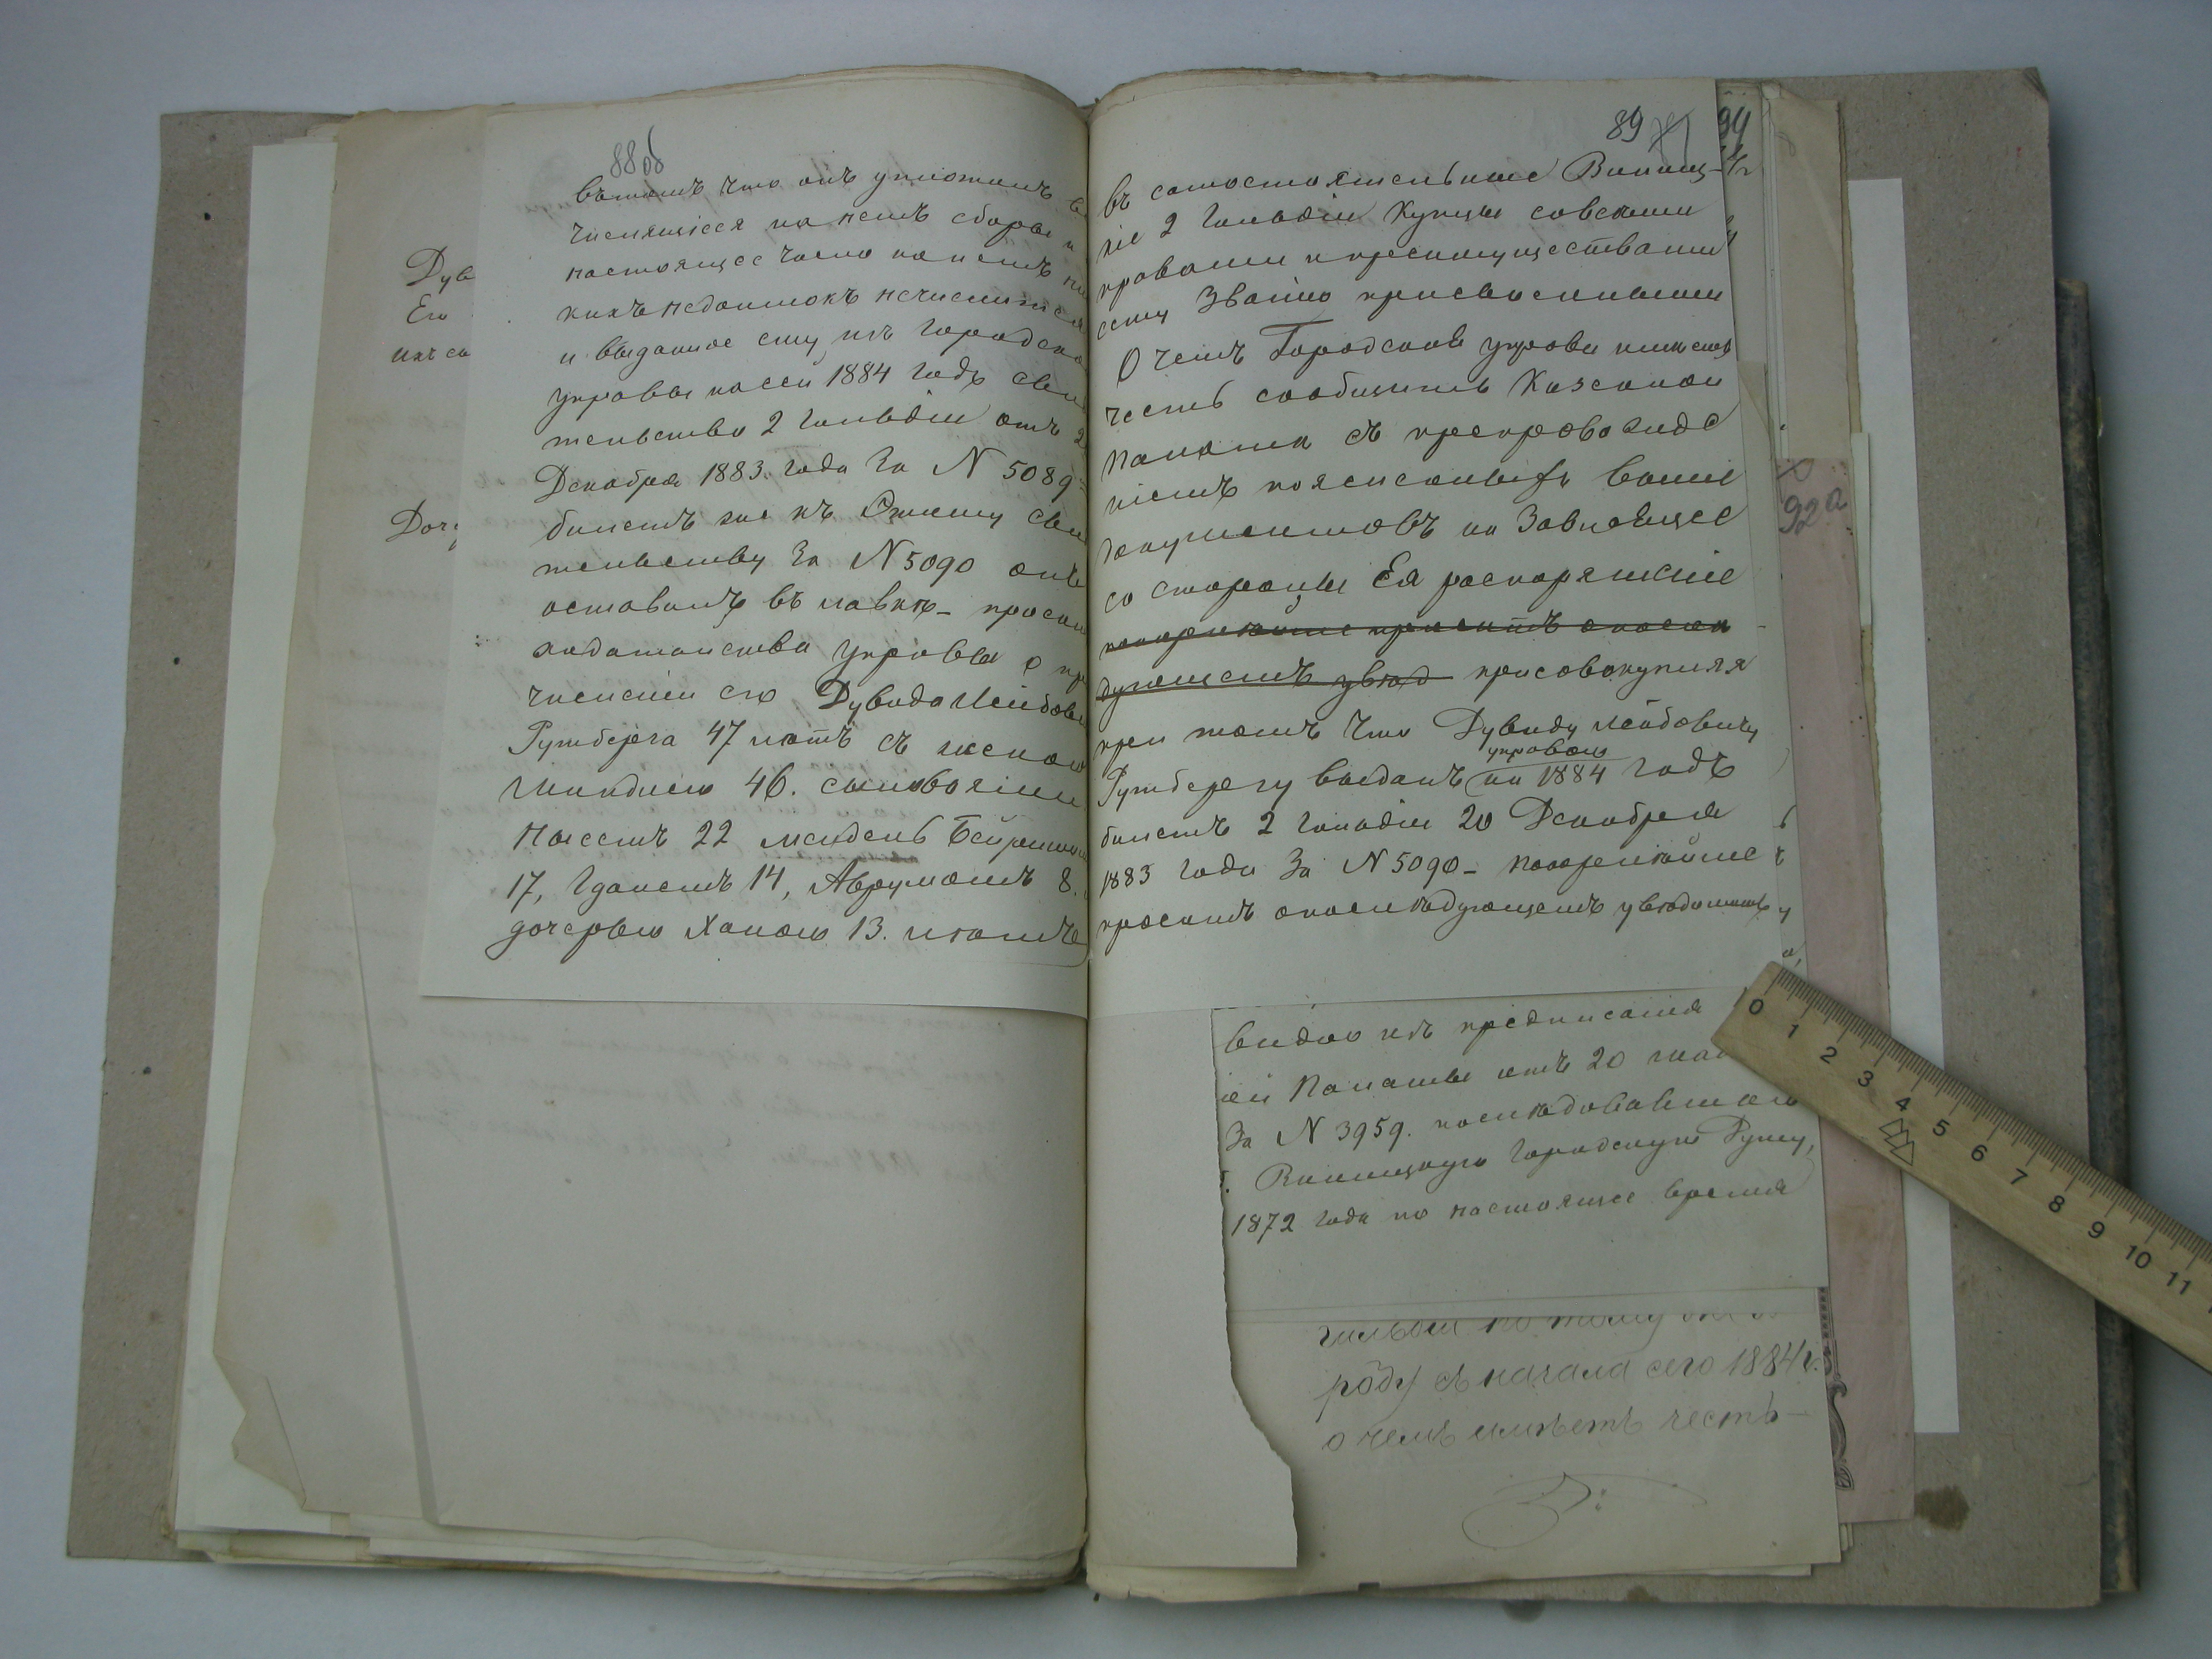 88 об
въ томъ что онъ уплотилъ
числящіеся на немъ сборы и
настоящее число на немъ ни
кихъ недоимокъ нечислится
и выданное ему изъ Городско
управы на сей 1884 годъ сви
тельство 2 Гильдіи отъ 2
Декабря 1883. года За N 5089
билетъ же къ Оному сви
тельству За N 5090 онъ
оставилъ въ лавкѣ - просили
ходатайства Управы о при
численіи его Дувида Лейбови
Рутберга 47 лѣтъ съ женою
Шиндлею 46. сыновьями
Мысемъ 22 Мендель Бейришомъ
17, Гданемъ 14, Аврумомъ 8.
дочерью Ханою 13. лѣтъ
89
въ самостоятельные Винниц-
кіе 2 Гильдіи Купцы совсѣми
правами и преимуществами
сему Званію присвоенными
О чемъ Городская управа имѣетъ
честь сообщить Казенной
Палатѣ съ препровожде
ніемъ поясненныхъ выше
документовъ на Зависящее
со стороны Ея распоряженіе
покорнѣйше проситъ о послѣ
дующемъ увѣд присовокупляя
при томъ что Дувиду Лейбовичу
управою
Рутбергу выданъ на 1884 годъ
билетъ 2 Гильдіи 20 Декабря
1883 года За N 5090 - покорнѣйше
проситъ о послѣдующемъ увѣдомить
94
92а
Дув
Его
ихъ сы
Доч
видно изъ предписанія
ей Палаты отъ 20 мая
За N 3959. послѣдовавшаго
Винницкую Городскую Думу,
1872 года по настоящее время
гильдіи по тому же го
роду съ начала сего 1884 г.
о чемъ имѣетъ честь -
0 1 2 3 4 5 6 7 8 9 10 11